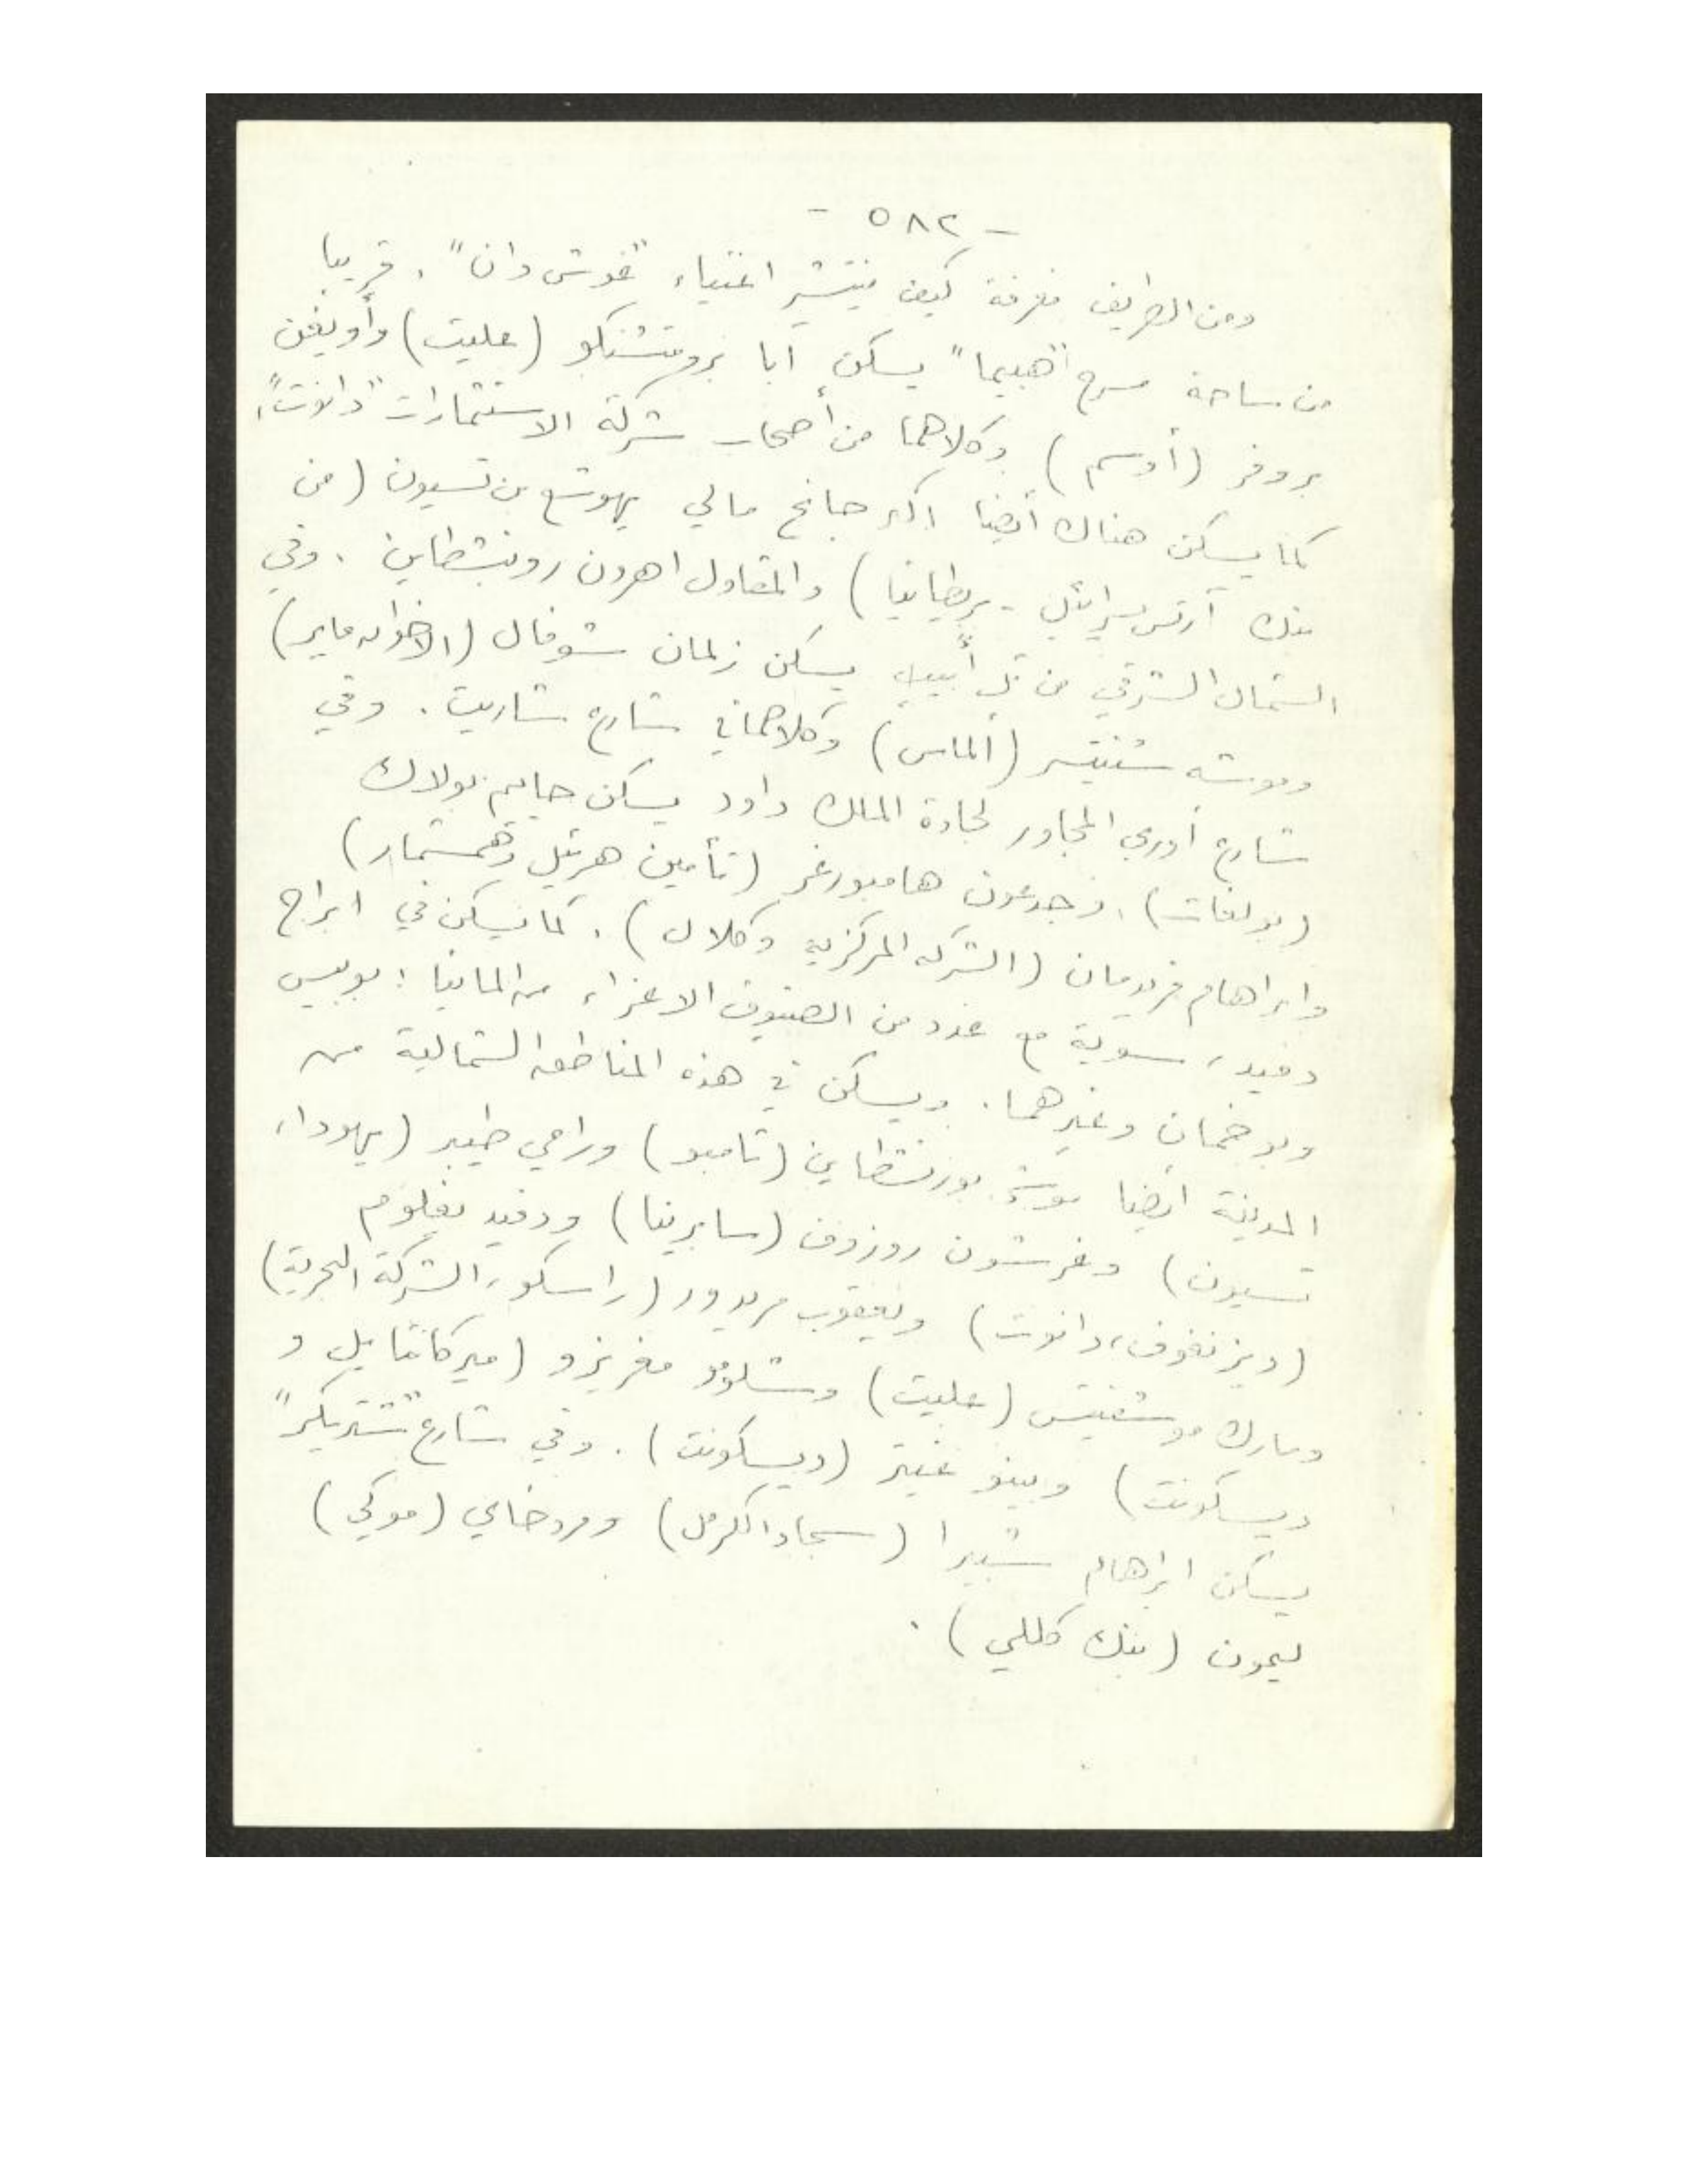 - ٥٨٢ -
ومن الطريف معرفة كيف ينتشر اغنياء "غوش دان" . قريبا
من ساحة مسرح "هبيما" يسكن آبا برومتشنكو (عليت) وأويغن
بروفر (أوسم) وكلاهما من أصحاب شركة الاستثمارات "دانوت"،
كما يسكن هناك أيضا اكبر جانح مالي يهوشع بن تسيون (من
بنك آرتس يسرائيل - بريطانيا) والمقاول اهرون روبنشطاين . وفي
الشمال الشرقي من تل أبيب يسكن زلمان شوفال (الاخوان ماير)
وموشه شنيتسر (ألماس) وكلاهما في شارع شاريت . وفي
شارع أوري المجاور لجادة الملك داود يسكن حاييم بولاك
(بولغات) ، وجدعون هامبورغر (تأمين هرئيل وهمشمار)
وابراهام فريدمان (الشركة المركزية وكلال) . كما يسكن في ابراج
دفيد، سوية مع عدد من الضيوف الاعزاء من المانيا : بوبيس
وبوخمان وغيرهما . ويسكن في هذه المناطق الشمالية من
المدينة ايضا موشيه بورنشطاين (تامبو) ورامي طيبر (يهودا،
تسيون) وغرشون روزوف (سابرينا) ودفيد بغلوم
(ديزنغوف، دانوت) ويعقوب مريدور (راسكو، الشركة البحرية)
ومارك موشفيتس (عليت) وشلومو مغريزو (ميركانتايل و
ديسكونت) وبينو غيتر (ديسكونت) . وفي شارع "شتريكر"
يسكن ابراهام شبيرا (سجاد الكرمل) ومردخاي (موكي)
ليمون (بنك كللي) .